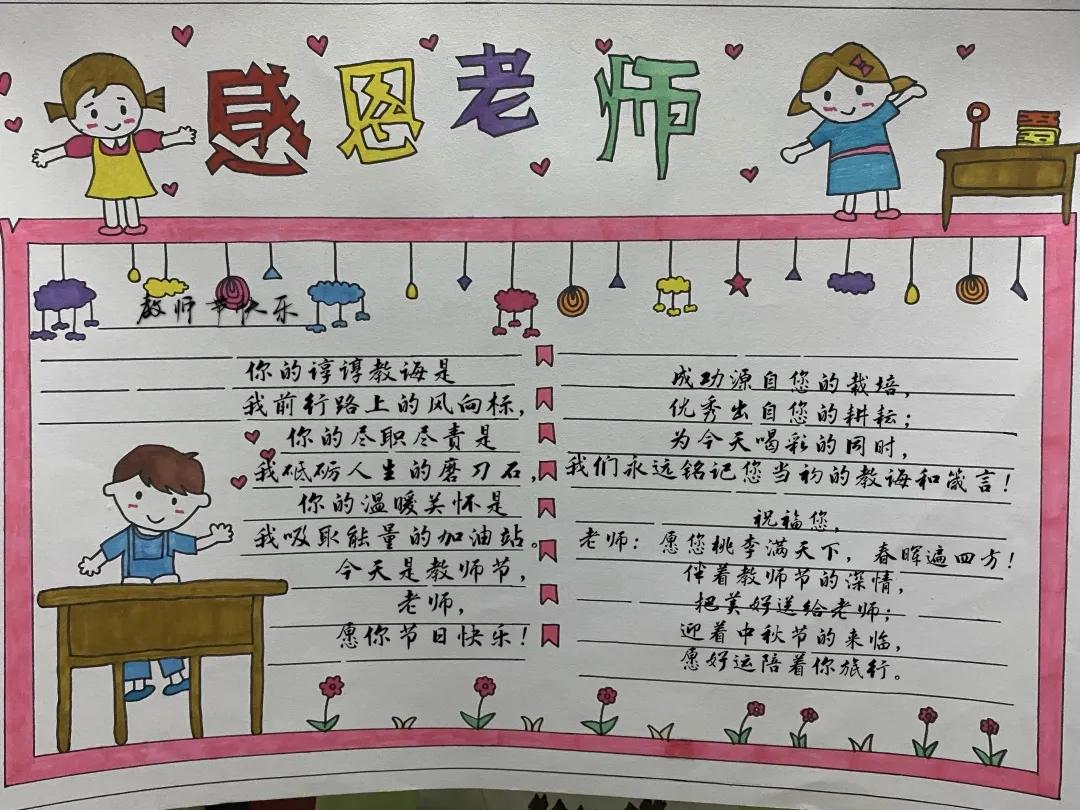 感恩老师
教师节快乐
你的谆谆教诲是
我前行路上的风向标，
你的尽职尽责是
我砥砺人生的磨刀石，
你的温暖关怀是
我吸取能量的加油站。
今天是教师节，
老师，
愿你节日快乐！
成功源自您的栽培，
优秀出自您的耕耘；
为今天喝彩的同时，
我们永远铭记您当初的教诲和箴言！
祝福您，
老师：愿您桃李满天下，春晖遍四方！
伴着教师节的深情，
把美好送给老师；
迎着中秋节的来临，
愿好运陪着你旅行。